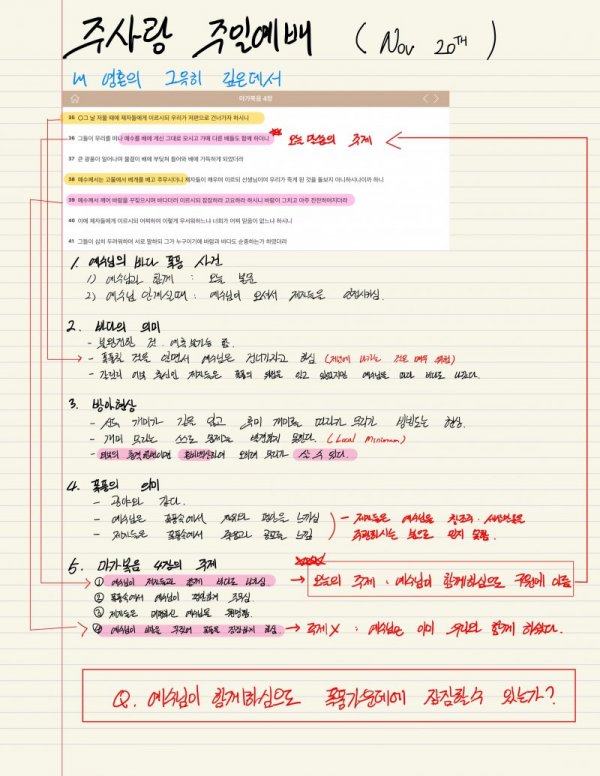 주사랑 주일예배 (Nov 20TH)
내 영혼의 그윽히 깊은데서
마가복음 4장
35 ○그 날 저물 때에 제자들에게 이르시되 우리가 저편으로 건너가자 하시니
36 그들이 무리를 떠나 예수를 배에 계신 그대로 모시고 가매 다른 배들도 함께 하더니
오늘 말씀의 주제
37 큰 광풍이 일어나며 물결이 배에 부딪쳐 들어와 배에 가득하게 되었더라
38 예수께서는 고물에서 베개를 베고 주무시더니 제자들이 깨우며 이르되 선생님이여 우리가 죽게 된 것을 돌보지 아니하시나이까 하니
39 예수께서 깨어 바람을 꾸짖으시며 바다더러 이르시되 잠잠하라 고요하라 하시니 바람이 그치고 아주 잔잔하여지더라
40 이에 제자들에게 이르시되 어찌하여 이렇게 무서워하느냐 너희가 어찌 믿음이 없느냐 하시니
41 그들이 심히 두려워하여 서로 말하되 그가 누구이기에 바람과 바다도 순종하는가 하였더라
1. 예수님의 바다 폭풍 사건
1) 예수님과 함께 : 오늘 본문
2) 예수님 안계실때 : 예수님이 오셔서 제자들을
2. 바다의 의미
- 불완전한 것. 예측불가능 함.
- 폭풍칠 것을 알면서 예수님은 건너가자고 하심 (저녁에 나가는 것은 매우 위험)
- 갈릴리 어부 출신인 제자들은 폭풍의 위험을 알고 있었지만 예수님을 따라 바다로 나갔다.
3. 방아현상
- 개미가 길을 잃고 개미를 따라가 무리가 빙빙도는 현상.
- 개미 무리는 스스로 문제를 해결하지 못한다. (Local Minimum)
- 외부의 충격 무리가 살 수 있다.
4. 폭풍의 의미
- 광야와 같다.
- 예수님은 폭풍속에서 평안을 느끼심
- 제자들은 폭풍속에서 공포를 느낌
- 제자들은 예수님을 창조주·세상만물을
주관하시는 분으로 믿지 못함.
5. 마가복음 4장의 주제
① 예수님이 제자들과 함께 바다로 나가심
→ 오늘의 주제 : 예수님이 함께하심으로 구원에 이름
② 폭풍속에서 예수님이 편안하게 주무심
③ 제자들은 예수님을
④ 예수님이 바람을 꾸짖어 폭풍을 잠잠하게 하심
→ 주제X : 예수님은 이미 우리와 함께 하셨다.
Q. 예수님이 함께하심으로 폭풍가운데에 잠잠할 수 있는가?